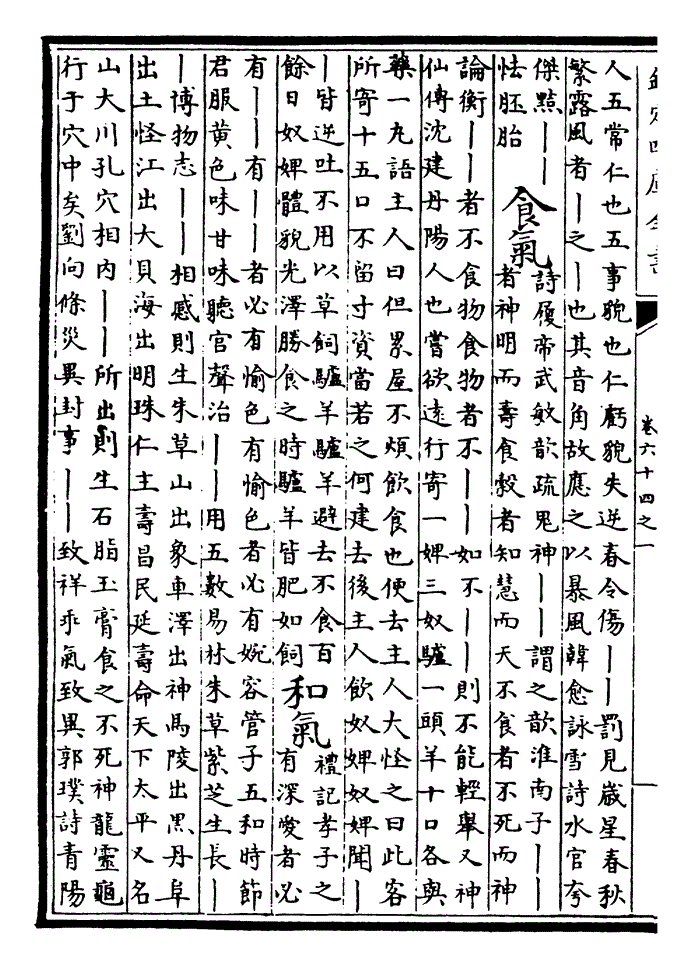 欽定四庫全書
卷六十四之一
人五常仁也五事貌也仁虧貌失逆春令傷丨丨罰見歲星春秋
繁露風者丨之丨也其音角故應之以暴風韓愈詠雪詩水官夸
傑黠丨丨
怯胚胎
食氣
詩履帝武敏歆疏鬼神丨丨謂之歆淮南子丨丨
者神明而壽食穀者知慧而天不食者不死而神
論衡丨丨者不食物食物者不丨丨如不丨丨則不能輕舉又神
仙傳沈建丹陽人也嘗欲遠行寄一婢三奴驢一頭羊十口各與
藥一丸語主人曰但累屋不煩飲食也便去主人大怪之曰此客
所寄十五口不留寸資當若之何建去後主人飲奴婢奴婢聞丨
丨皆逆吐不用以草飼驢羊驢羊避去不食百
餘日奴婢體貌光澤勝食之時驢羊皆肥如飼
和氣
禮記孝子之
有深愛者必
有丨丨有丨丨者必有愉色有愉色者必有婉容管子五和時節
君服黄色味甘味聽宫聲治丨丨用五數易林朱草紫芝生長丨
丨博物志丨丨相感則生朱草山出象車澤出神馬陵出黑丹阜
出土怪江出大貝海出明珠仁主壽昌民延壽命天下太平又名
山大川孔穴相内丨丨所出則生石脂玉膏食之不死神龍靈龜
行于穴中矣劉向條災異封事丨丨致祥乖氣致異郭璞詩青陽